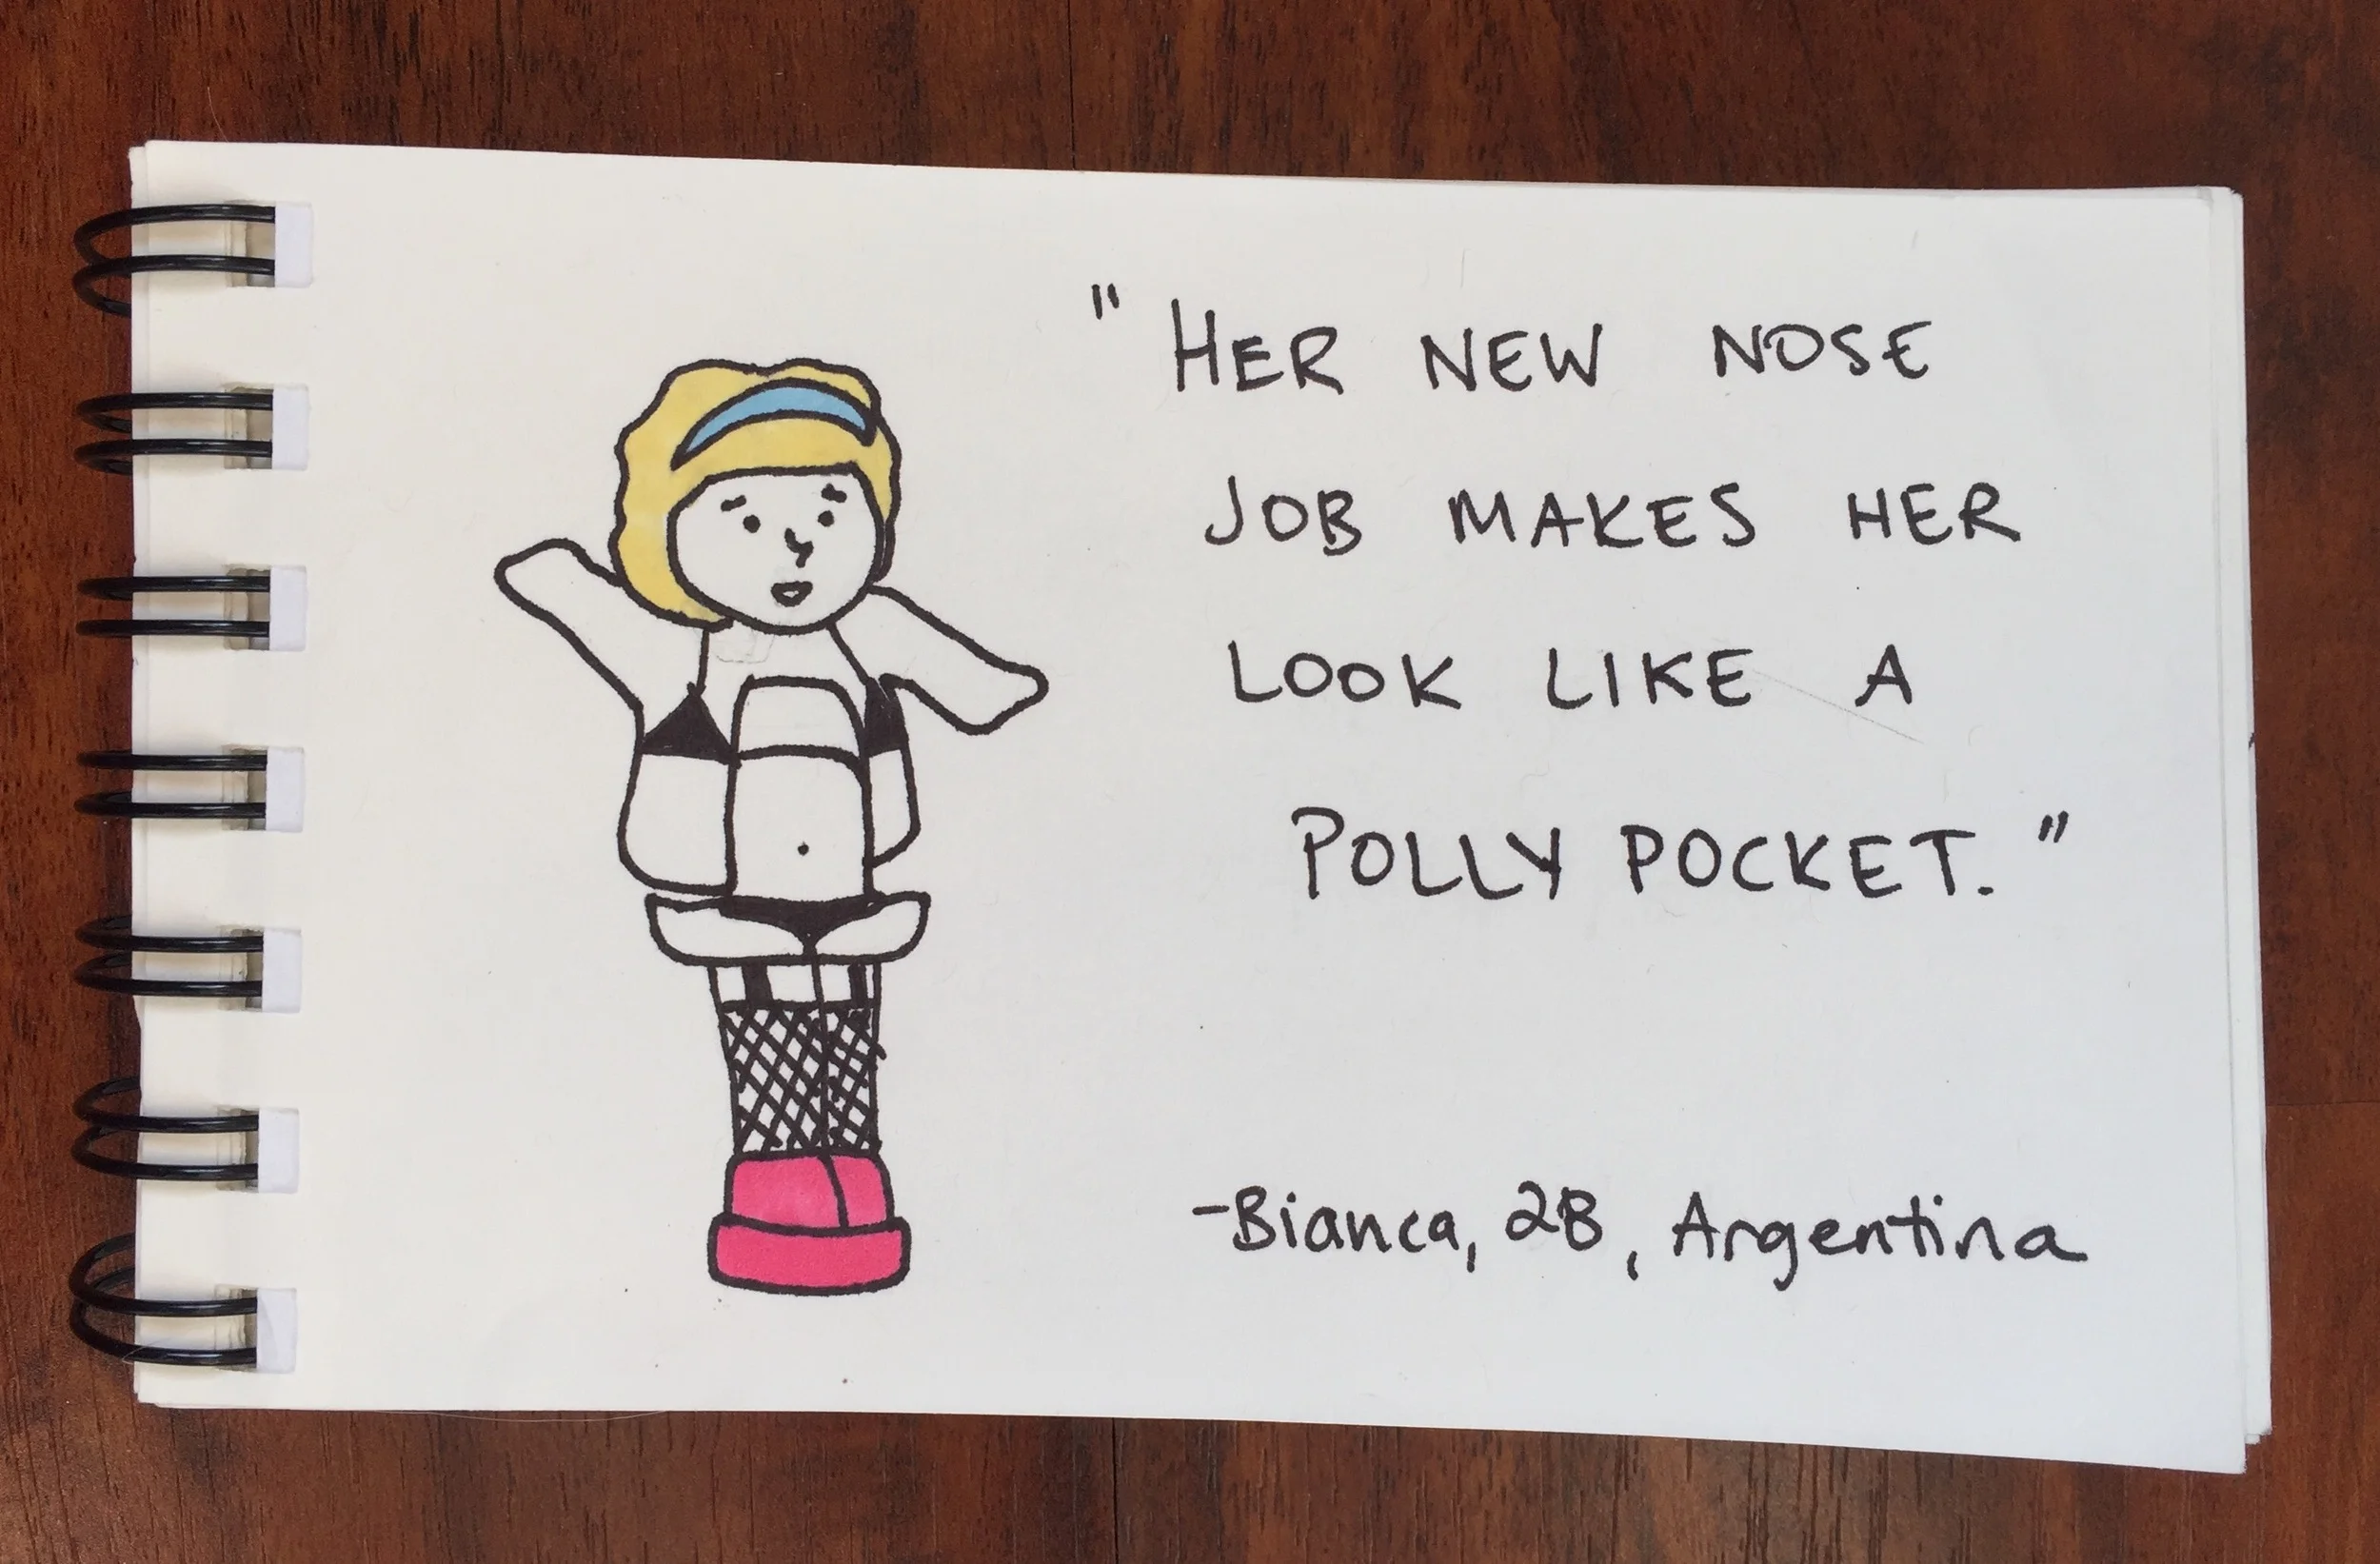 "HER NEW NOSE
JOB MAKES HER
LOOK LIKE A
POLLY POCKET."
-Bianca, 28, Argentina